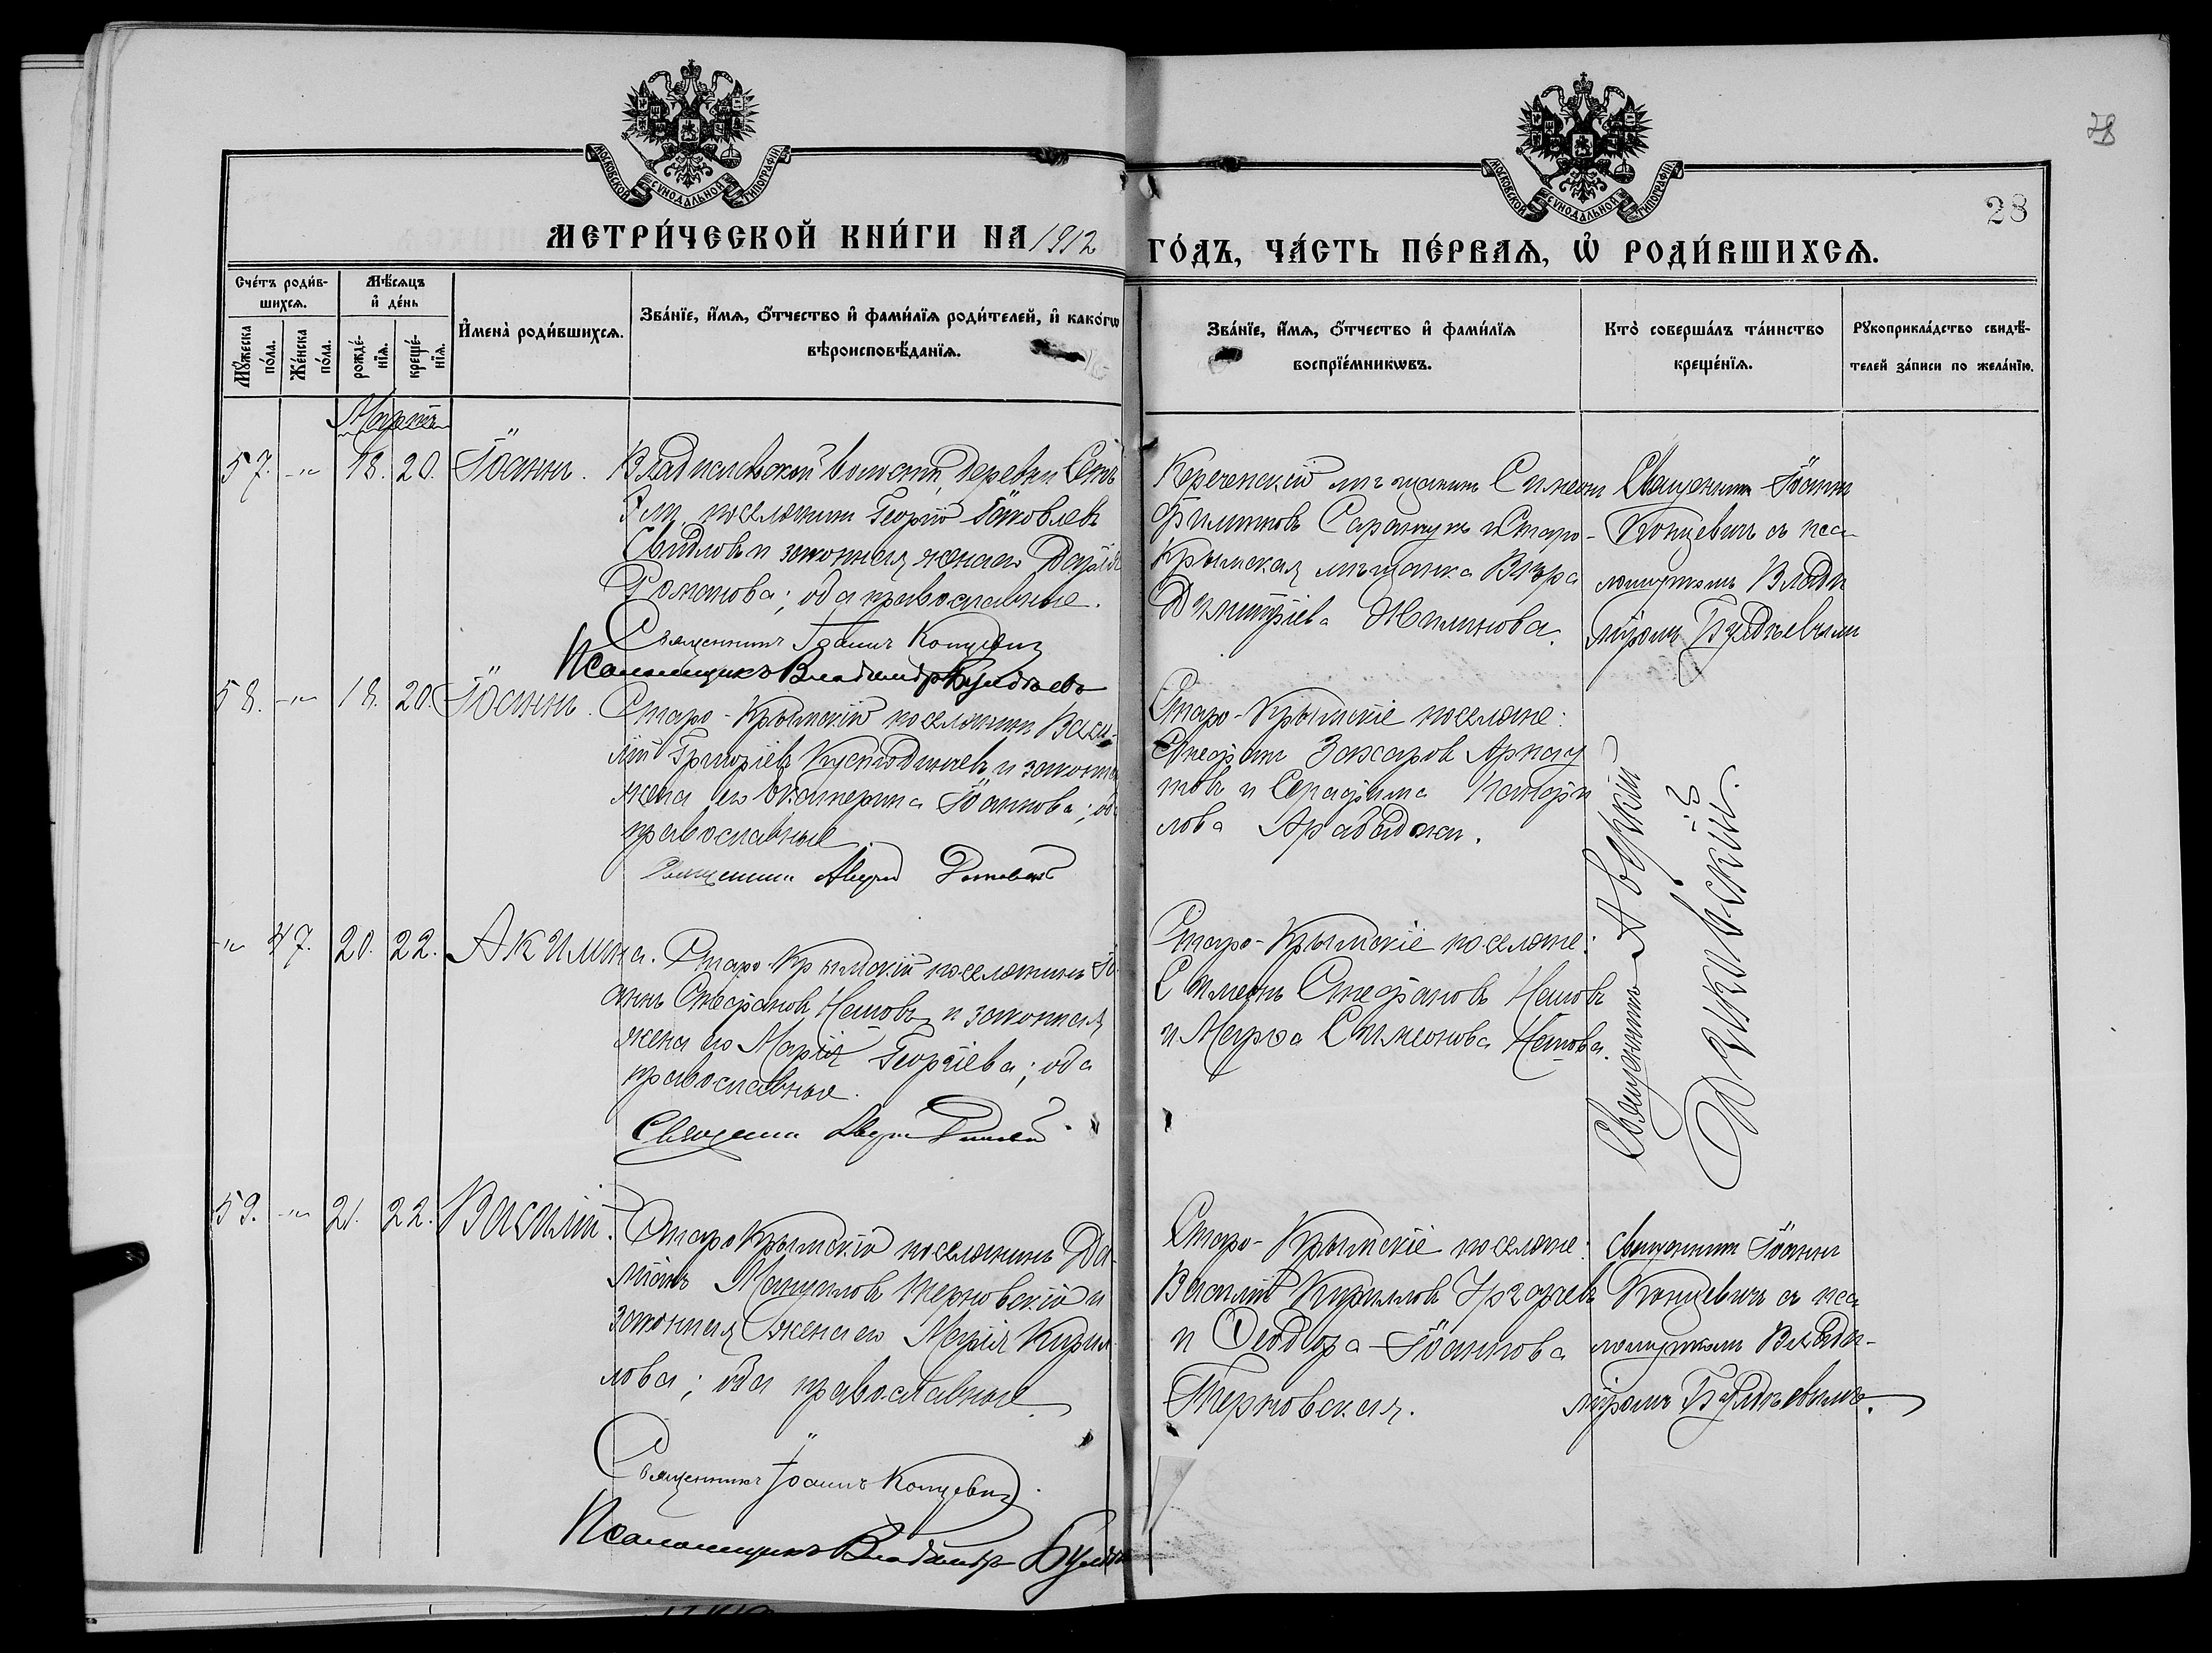 78
28
МОСКОВСКОЙ СУНОДАЛЬНОЙ ТИПОГРАФІИ
МОСКОВСКОЙ СУНОДАЛЬНОЙ ТИПОГРАФІИ
МЕТРИ́ЧЕСКОЙ КНИ́ГИ НА 1912 ГО́ДЪ, ЧА́СТЬ ПЕ́РВАѦ, Ѡ҆ РОДИ́ВШИХСѦ.
Сче́тъ роди́в-
шихсѧ.
Мꙋ́жеска по́ла.
Же́нска по́ла.
Мѣ́сѧцъ
и҆ де́нь
рожде́-
нїѧ.
креще́-
нїѧ.
И҆мена̀ роди́вшихсѧ.
Зва́нїе, и҆́мѧ, ѻ҆́тчество и҆ фами́лїѧ роди́телей, и҆ како́гѡ
вѣроисповѣ́данїѧ.
Зва́нїе, и҆́мѧ, ѻ҆́тчество и҆ фами́лїѧ
воспрїе́мникѡвъ.
Кто̀ соверша́лъ та́инство
креще́нїѧ.
Рꙋкоприкла́дство свидѣ́-
телей за́писи по жела́нїю.
Мартъ
57. -"- 18. 20. Іоаннъ.
Владиславской волости, деревни
поселянинъ Георгій Іаковлевъ
и законная жена его Дарія
Романова; оба православные.
Священникъ Іоаннъ Концевич
Псаломщикъ Владимір Булдѣевъ
Керченскій мѣщанинъ Симеонъ
Филипповъ Саранчукъ и Старо-
Крымская мѣщанка Вѣра
Димитріева Жилинова.
Священникъ Іоаннъ
Концевичъ съ пса-
ломщикомъ Влади
міромъ Булдѣевымъ
58. -"- 18. 20. Іоаннъ.
Старо-Крымскій поселянинъ Васи-
лій Григоріевъ и законная
жена его Екатерина Іоаннова; оба
православные
Священник Аверкій
Старо-Крымскіе поселяне:
Стефанъ Захаровъ Арнау
товъ и Серафима Панфи
лова Арабаджи.
Священникъ Аверкій
-"- 47. 20. 22. Акилина.
Старо-Крымскій поселянинъ Іо-
аннъ Стефановъ Неновъ и законная
жена его Марія Георгіева; оба
православные.
Священник Аверкій
Старо-Крымскіе поселяне:
Симеонъ Стефановъ Неновъ
и Марѳа Симеонова Ненова.
59. -"- 21. 22. Василій.
Старо-Крымскій поселянинъ Да-
міанъ Мануиловъ Терновскій и
законная жена его Марія Кирил-
лова; оба православные
Священникъ Іоаннъ Концевич
Псаломщикъ Владимір Булдѣ
Старо-Крымскіе поселяне:
Василій Кирилловъ
и Ѳеодора Іоаннова
Терновская.
Священникъ Іоаннъ
Концевичъ съ пса
ломщикомъ Влади-
міромъ Булдѣевымъ.